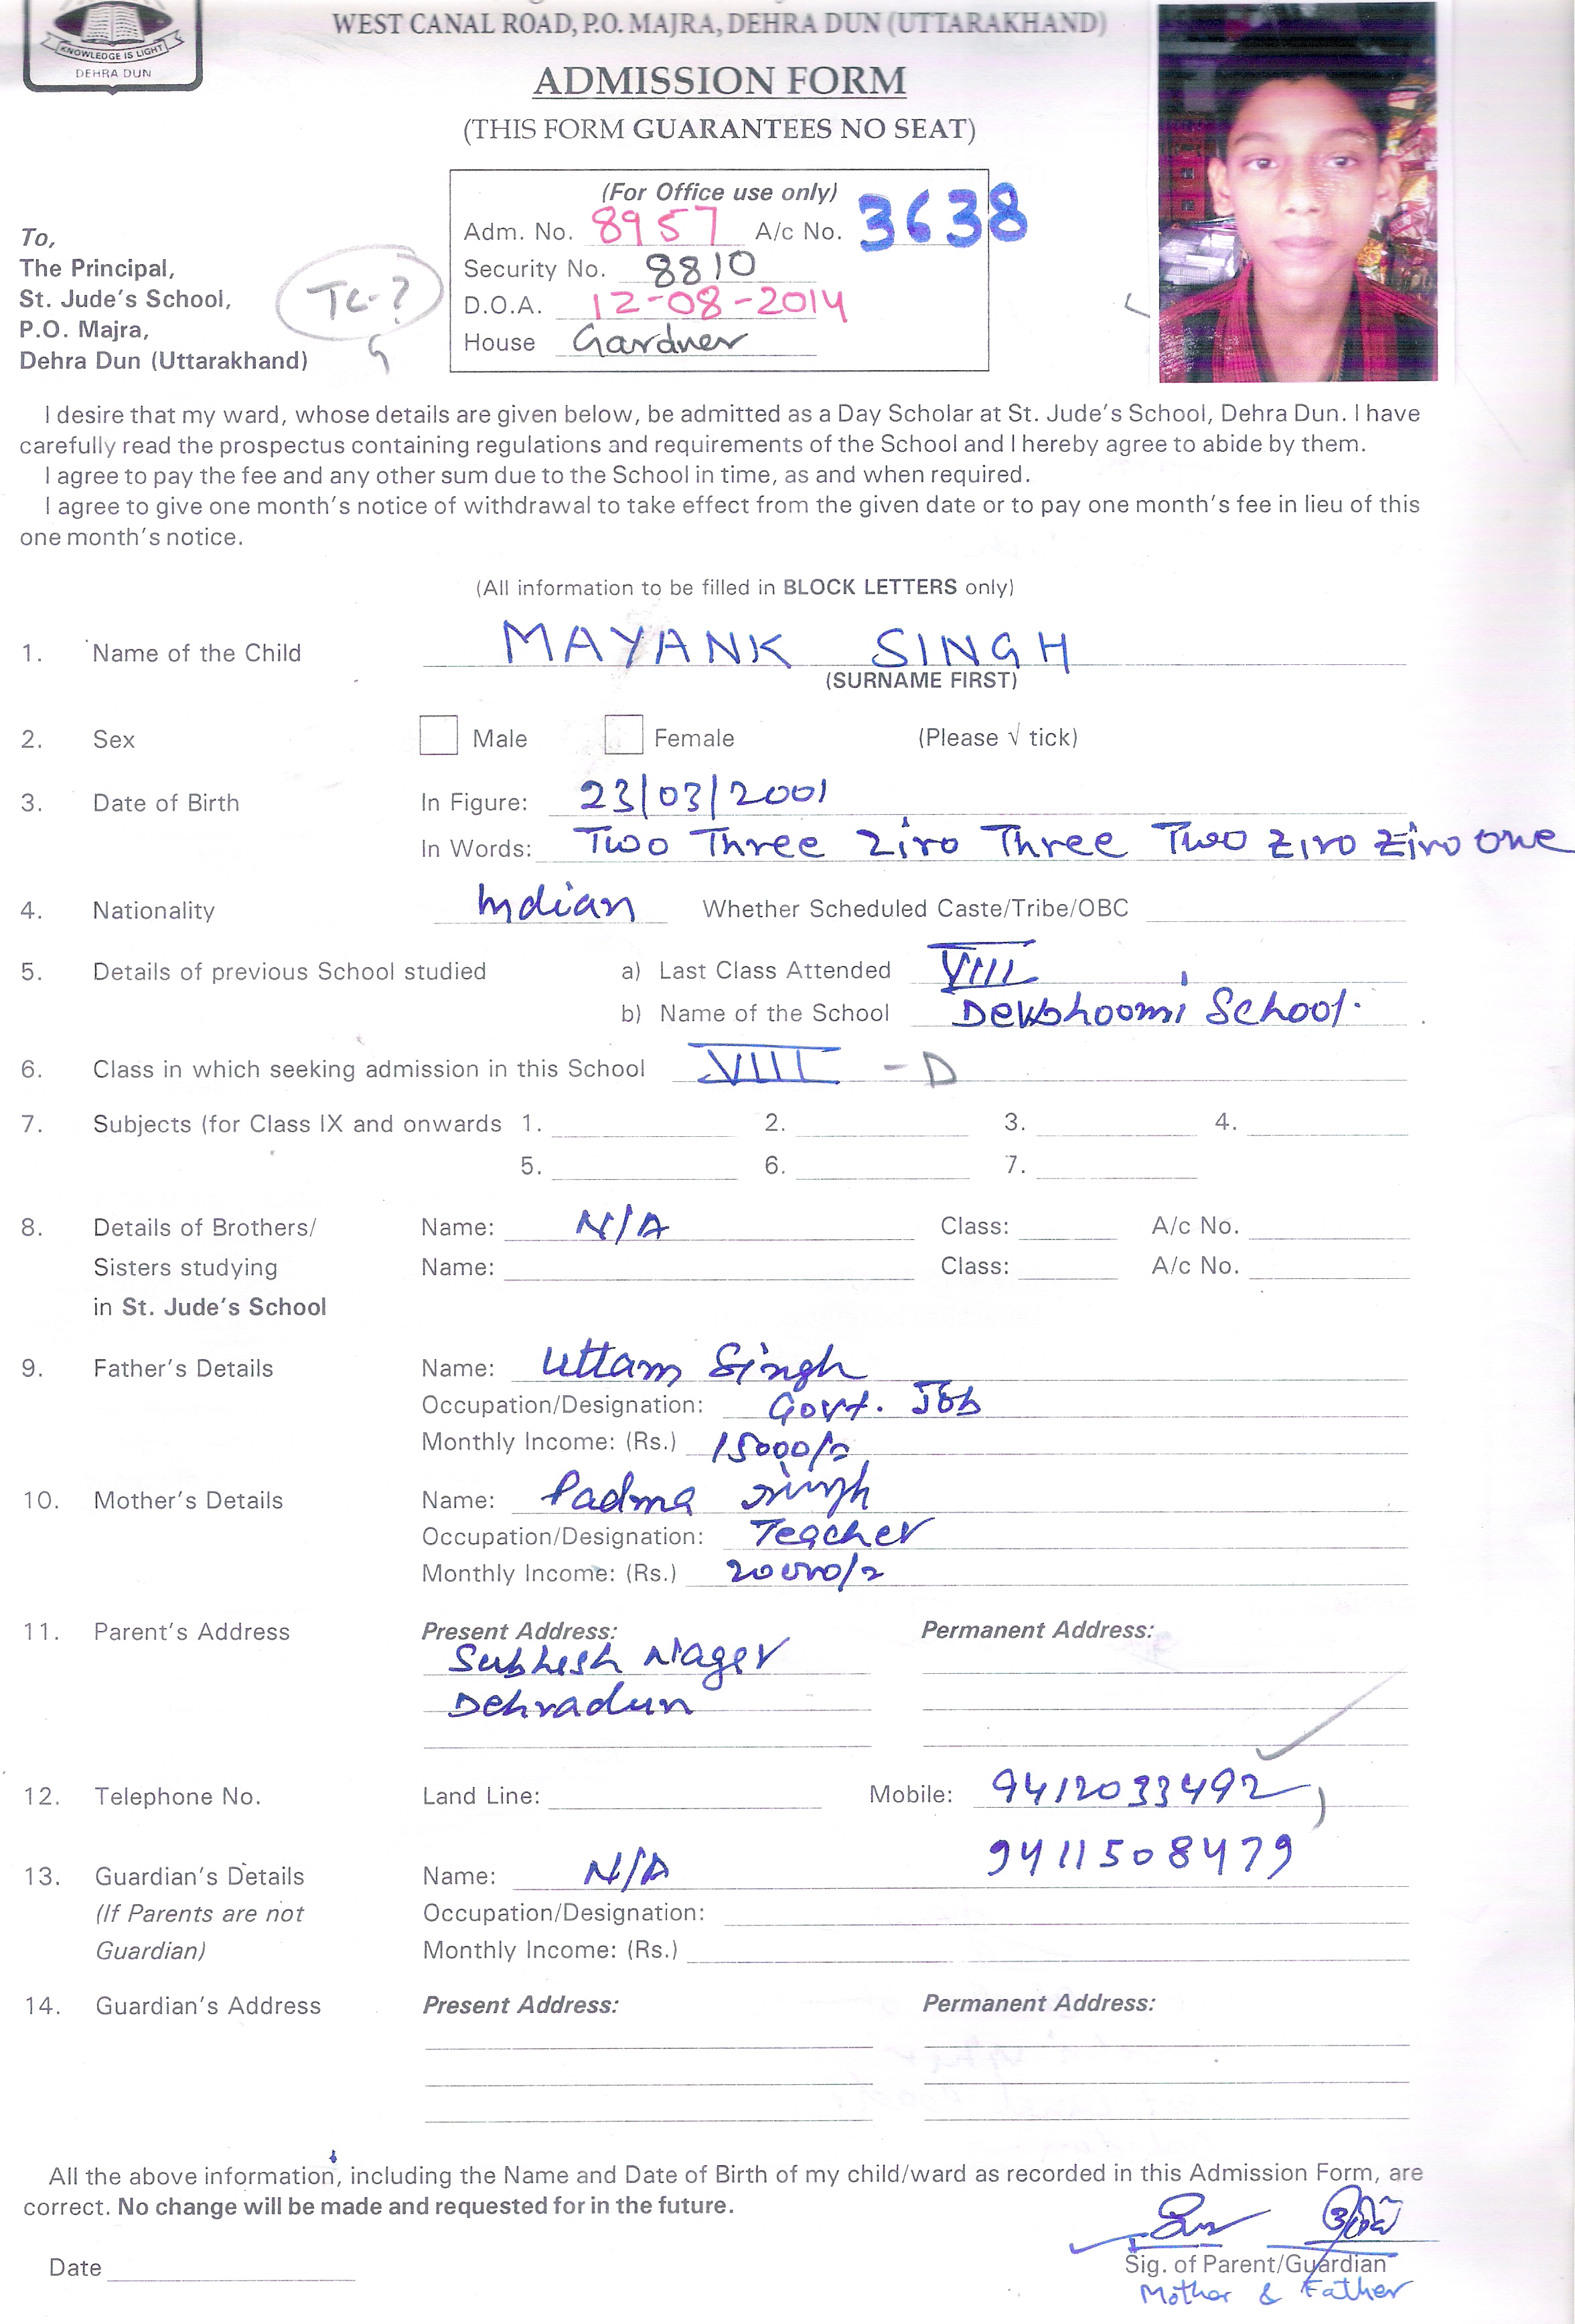 KNOWLEDGE IS LIGHT
DEHRA DUN
WEST CANAL ROAD, P.O. MAJRA, DEHRA DUN (UTTARAKHAND)
ADMISSION FORM
(THIS FORM GUARANTEES NO SEAT)
(For Office use only)
Adm. No. 8957 A/c No. 3638
Security No. 8810
D.O.A. 12-08-2014
House Gardner
To,
The Principal,
St. Jude's School,
P.O. Majra,
Dehra Dun (Uttarakhand)
TC-?
I desire that my ward, whose details are given below, be admitted as a Day Scholar at St. Jude's School, Dehra Dun. I have
carefully read the prospectus containing regulations and requirements of the School and I hereby agree to abide by them.
I agree to pay the fee and any other sum due to the School in time, as and when required.
I agree to give one month's notice of withdrawal to take effect from the given date or to pay one month's fee in lieu of this
one month's notice.
(All information to be filled in BLOCK LETTERS only)
1. Name of the Child MAYANK SINGH
(SURNAME FIRST)
2. Sex Male Female (Please √ tick)
3. Date of Birth In Figure: 23/03/2001
In Words: Two Three Ziro Three Two Ziro Ziro one
4. Nationality Indian Whether Scheduled Caste/Tribe/OBC
5. Details of previous School studied a) Last Class Attended VIII
b) Name of the School Devbhoomi School.
6. Class in which seeking admission in this School VIII - D
7. Subjects (for Class IX and onwards 1. 2. 3. 4.
5. 6. 7.
8. Details of Brothers/ Name: N/A Class: A/c No.
Sisters studying Name: Class: A/c No.
in St. Jude's School
9. Father's Details Name: Uttam Singh
Occupation/Designation: Govt. Job
Monthly Income: (Rs.) 15000/=
10. Mother's Details Name: Padma Singh
Occupation/Designation: Teacher
Monthly Income: (Rs.) 20000/=
11. Parent's Address Present Address: Permanent Address:
Subhesh Nager
Dehradun
12. Telephone No. Land Line: Mobile: 9412033492,
9411508479
13. Guardian's Details Name: N/A
(If Parents are not Occupation/Designation:
Guardian) Monthly Income: (Rs.)
14. Guardian's Address Present Address: Permanent Address:
All the above information, including the Name and Date of Birth of my child/ward as recorded in this Admission Form, are
correct. No change will be made and requested for in the future.
Date
Sig. of Parent/Guardian
Mother & Father